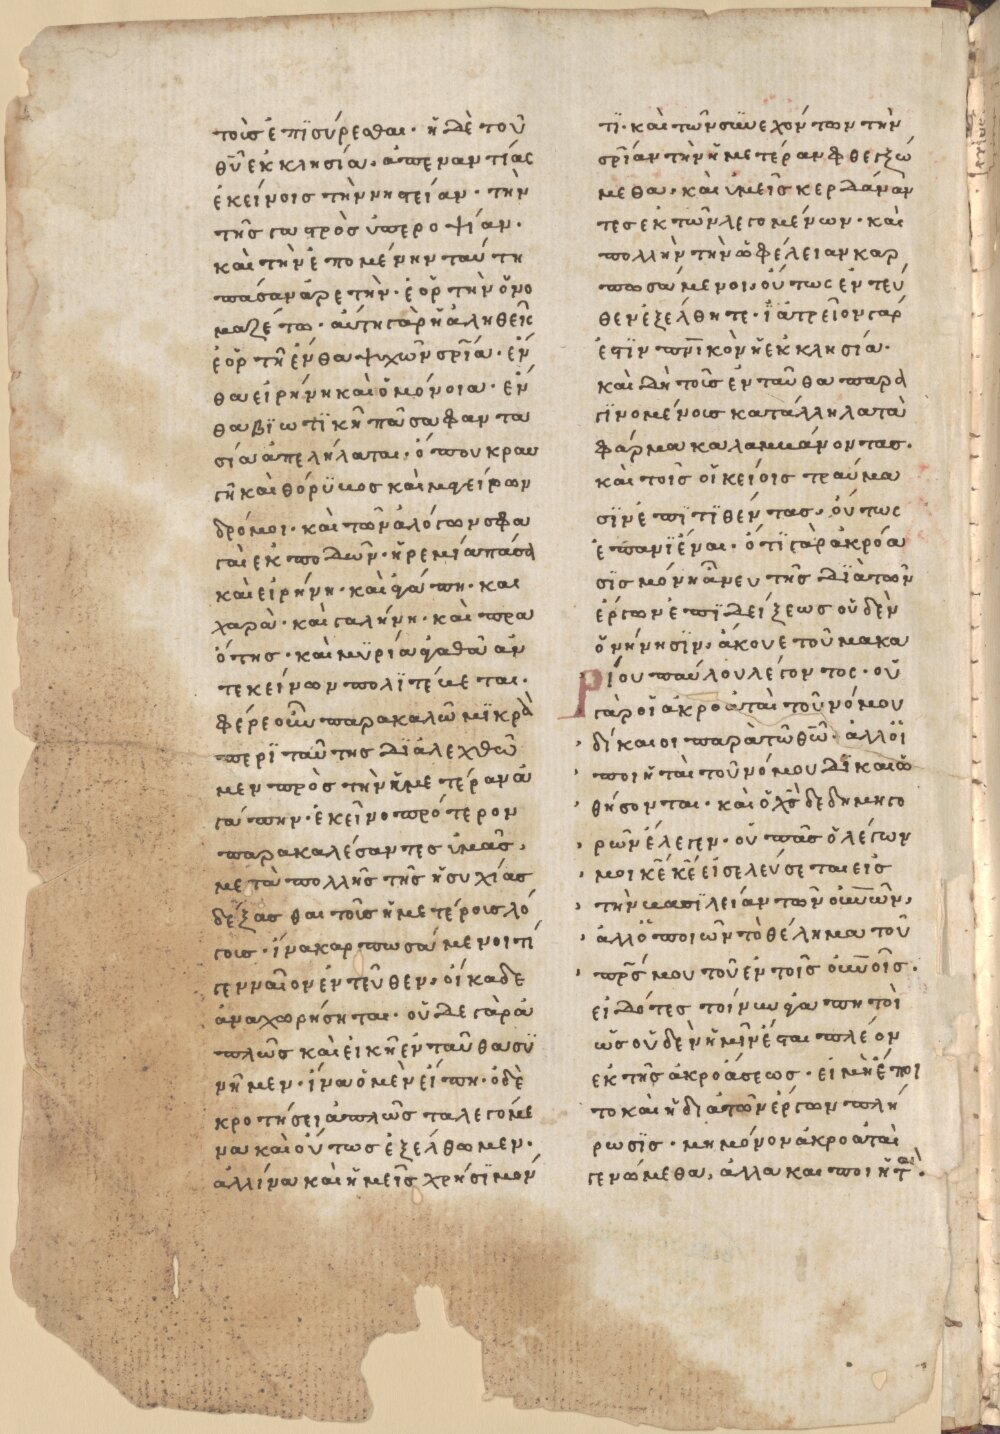 τοῖς ἐπισύρεσθαι· ἡ δὲ τοῦ
θῡ ἐκκλησία. ἀπεναντίας
ἐκείνοις τὴν νηστείαν· τὴν
τῆς γαστρὸς ὑπεροψίαν·
καὶ τὴν ἑπομένην ταύτη
πᾶσαν ἀρετὴν· ἑορτὴν ὀνο
μαζέτω· αὕτη γὰρ ἡ ἀληθεὶς
ἑορτὴ ἔνθα ψυχῶν σρία· ἔν
θα εἰρήνη καὶ ὁμόνοια· ἔν
θα βιωτικὴ πᾶσα φαντα
σία ἀπελήλαται. ὅπου κραυ
γὴ καὶ θόρυβος καὶ μαγείρων
δρόμοι· καὶ τῶν ἀλόγων σφα
γαὶ ἐκποδὼν· ἠρεμία πᾶσα
καὶ εἰρήνη· καὶ ἀγάπη· καὶ
χαρὰ· καὶ γαλήνη· καὶ πρα
ότης· καὶ μυρία ἀγαθὰ ἀν
τεκείνων πολιτεύεται·
φέρε οὖν παρακαλῶ μικρὰ
περὶ ταύτης διαλεχθῶ
μεν πρὸς τὴν ἡμετέραν ἀ
γάπην· ἐκεῖνο πρότερον
παρακαλέσαντες ὑμᾶς,
μετὰ πολλῆς τῆς ἡσυχίας
δέξασθαι τοῖς ἡμετέροις λό
γοις· ἵνα καρπωσάμενοι τί
γενναῖον ἐντεῦθεν, οἴκαδε
ἀναχωρήσηται· οὐδε γὰρ ἁ
πλῶς καὶ εἰκῆ ἐνταῦθα συ
νῆμεν· ἵνα ὁ μὲν εἴπη· ὁ δὲ
κροτήσει ἁπλῶς τα λεγόμε
να καὶ οὕτως ἐξέλθωμεν·
ἀλλ ἵνα καὶ ἡμεῖς χρήσιμόν
τι· καὶ τῶν συνεχόντων τὴν
σρίαν τὴν ἡμετέραν φθεγξώ
μεθα· καὶ ὑμεῖς κερδάναν
τες ἐκ τῶν λεγομένων· καὶ
πολλὴν τὴν ὠφέλειαν καρ
πωσάμενοι, οὕτως ἐντεύ
θεν ἐξέλθητε· ἰατρεῖον γάρ
ἐστιν πνικὸν ἡ ἐκκλησία·
καὶ δὴ τοῖς ἐνταῦθα παρα
γινομένοις κατάλληλα τὰ
φάρμακα λαμβάνοντας·
καὶ τοῖς οἰκείοις τραύμα
σιν ἐπιτιθέντας, οὕτως
ἐπανιέναι· ὅτι γὰρ ἀκρόα
σις μόνη ἄνευ τῆς διὰ τῶν
ἔργων ἐπιδείξεως οὐδὲν
ὀνήνησιν, ἄκουε τοῦ μακα
ρίου παύλου λέγοντος· οὐ
γὰρ οἱ ἀκροαταὶ τοῦ νόμου
δίκαιοι παρὰ τῶ θῶ· ἀλλ οἱ
ποιηταὶ τοῦ νόμου δικαιω
θήσονται· καὶ ὁ χς δὲ δημηγο
ρῶν ἔλεγεν· οὐ πᾶς ὁ λέγων
μοι κε κε εἰσελεύσεται εἰς
τὴν βασιλείαν τῶν οὐνῶν,
ἀλλ ὁ ποιῶν τὸ θέλημα τοῦ
πρς μου τοῦ ἐν τοῖς οὐνοῖς·
εἰδότες τοίνυν ἀγαπητοὶ
ὡς οὐδεν ἡμῖν ἔσται πλέον
ἐκ τῆς ἀκροάσεως· εἰ μὴ ἕποι
το καὶ ἡ διὰ τῶν ἔργων πλή
ρωσις· μη μόνον ἀκροαταὶ
γενώμεθα, ἀλλα και ποιηταὶ·